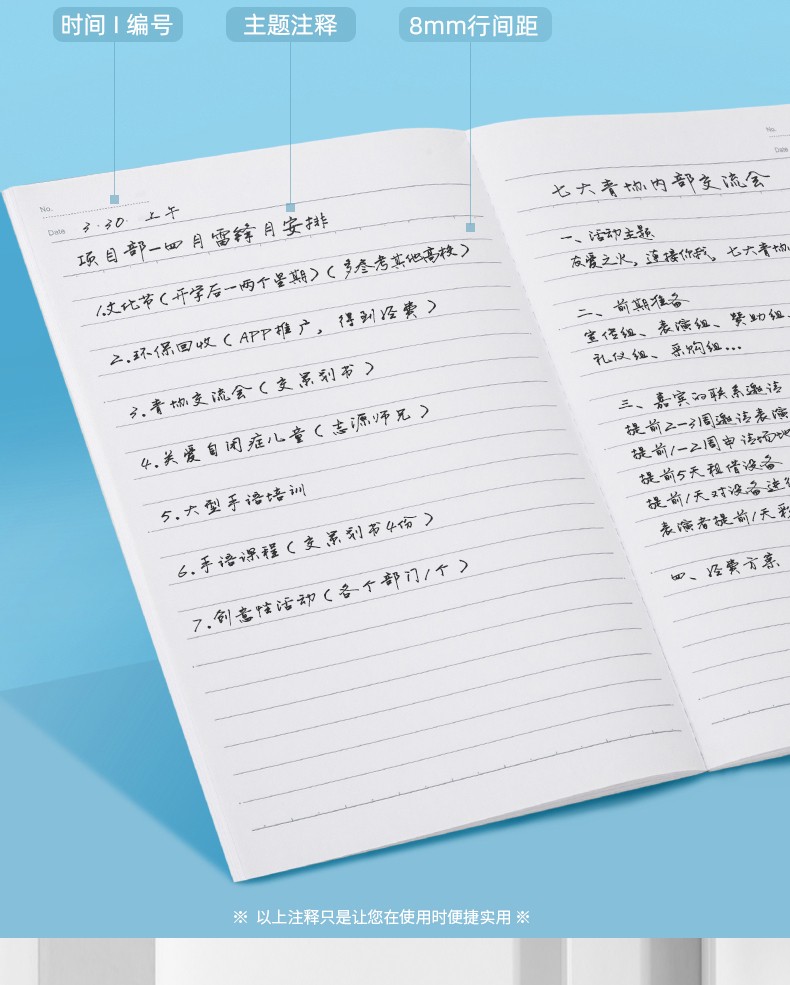 时间 | 编号
主题注释
8mm行间距
No.
Date 3.30. 上午
项目部—四月雷锋月安排
1.文化节(开学后一两个星期)(多参考其他高校)
2.环保回收(APP推广,得到经费)
3.青协交流会(交策划书)
4.关爱自闭症儿童(志源师兄)
5.大型手语培训
6.手语课程(交策划书4份)
7.创意性活动(各个部门1个)
No.
Date
七大青协内部交流会
一、活动主题
友爱之火,连接你我,七大青协
二、前期准备
宣传组、表演组、赞助组、
礼仪组、采购组...
三、嘉宾的联系邀请
提前2-3周邀请表演
提前1-2周申请场地
提前5天租借设备
提前1天对设备进行
表演者提前1天彩
四、经费方案
※ 以上注释只是让您在使用时便捷实用 ※